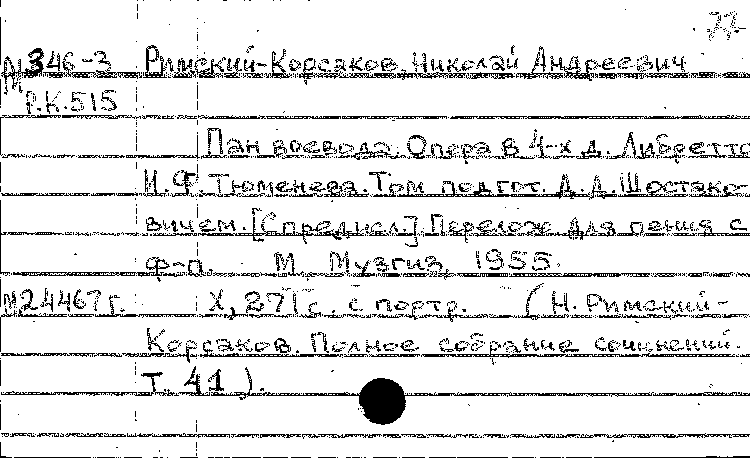 77
М346-3 Римский-Корсаков, Николай Андреевич
Р.К.515
Пан воевода. Опера в 4-х д. Либретто
И.Ф. Тюменева. Том подгот. Д.Д. Шостако-
вичем. [С предисл.] Перелож для пения с
ф-п. М, Музгиз, 1955.
М24467г. X, 271 с. с портр. (Н. Римский-
Корсаков. Полное собрание сочинений.
Т. 41).